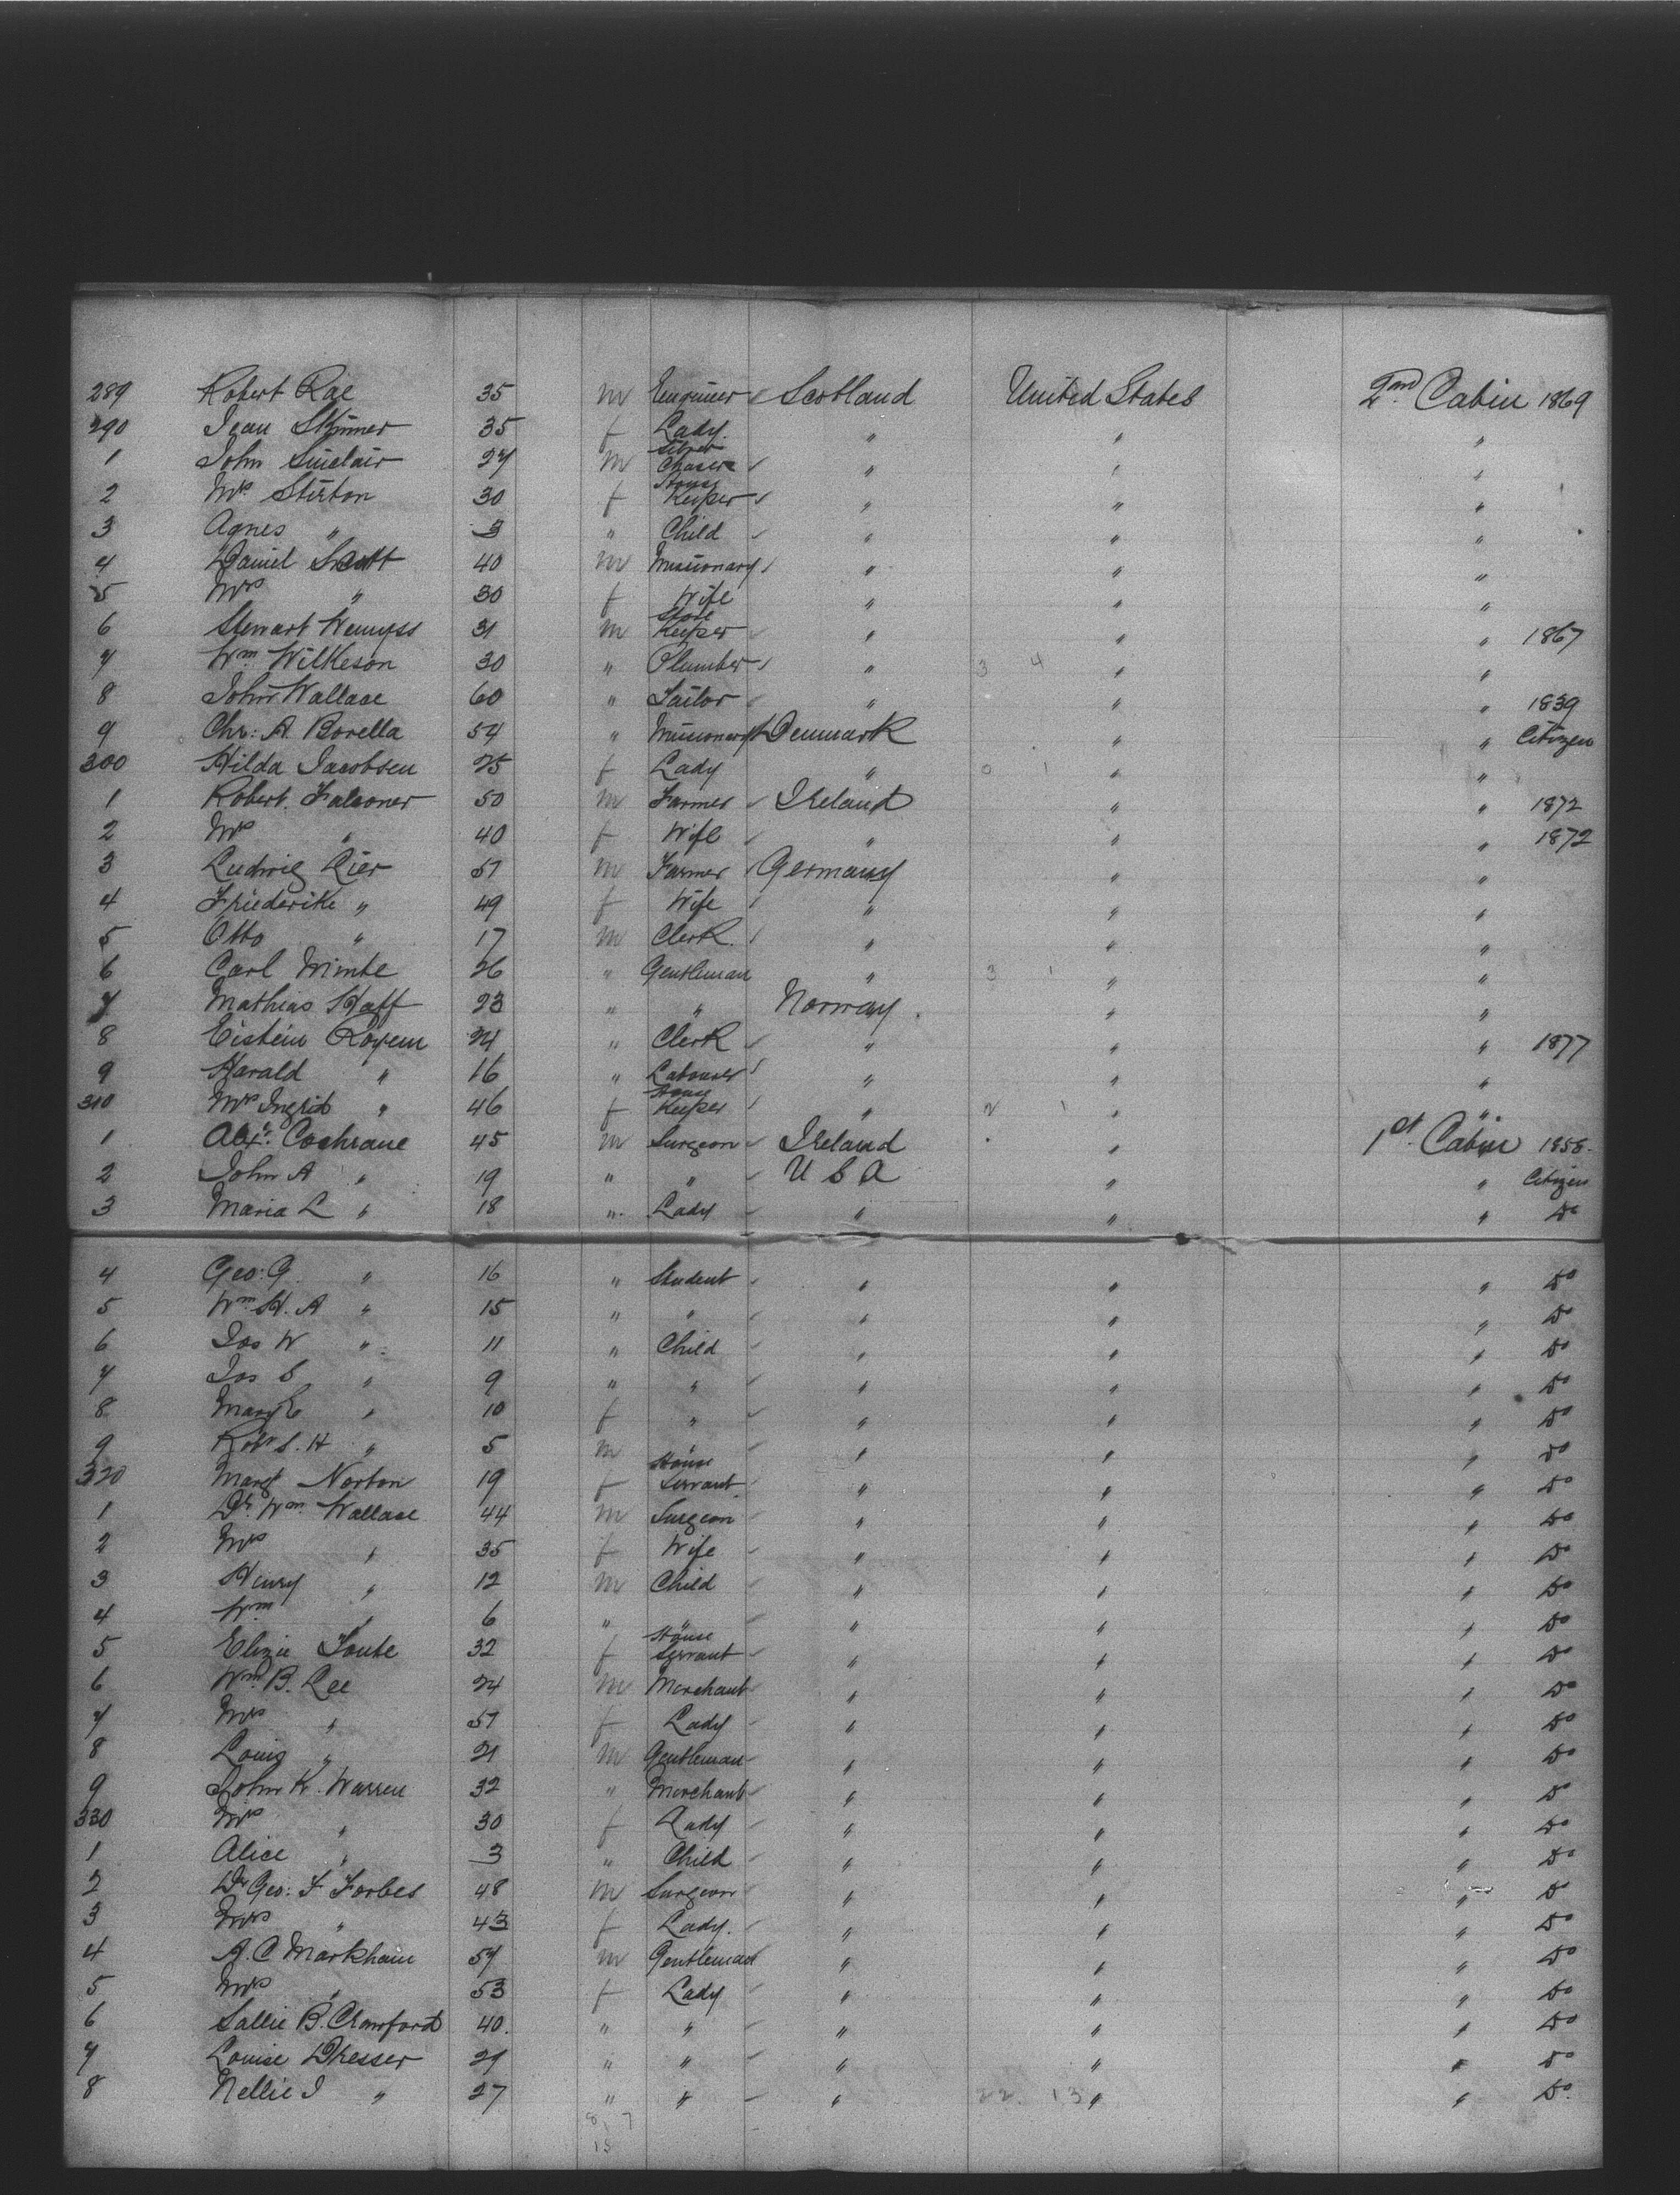 289 Robert Rae 35 m Engineer Scotland United States 2nd Cabin 1869
290 Jean Skinner 35 f Lady " " "
1 John Sinclair 27 m Silver Chaser " " "
2 Mrs Stirton 30 f House Keeper " " "
3 Agnes " 3 " Child " " "
4 Daniel Scott 40 m Missionary " " "
5 Mrs " 30 f Wife " " "
6 Stewart Wemyss 31 m Store Keeper " " " 1867
7 Wm Wilkeson 30 " Plumber " 3 4 " "
8 John Wallace 60 " Tailor " " " 1839
9 Chr: A. Borella 54 " Missionary Denmark " " Citizen
300 Hilda Jacobsen 25 f Lady " 0 1 " "
1 Robert Falconer 50 m Farmer Ireland " " 1872
2 Mrs " 40 f Wife " " " 1872
3 Ludwig Lier 57 m Farmer Germany " "
4 Friederike " 49 f Wife " " "
5 Otto " 17 m Clerk " " "
6 Carl 26 " Gentleman " 3 1 " "
7 Mathias Haff 23 " " Norway " "
8 Eistein Royem 24 " Clerk " " " 1877
9 Harald " 16 " Labourer " " "
310 Mrs Ingrid " 46 f House Keeper " 2 1 " "
1 Alexr. Cochrane 45 m Surgeon Ireland " 1st Cabin 1858
2 John A " 19 " " U S A " " Citizen
3 Maria L " 18 " Lady " " " Do
4 Geo: G. " 16 " Student " " " Do
5 Wm H. A " 15 " " " " " Do
6 Jas W " 11 " Child " " " Do
7 Jos S " 9 " " " " " Do
8 Mary E " 10 f " " " " Do
9 Robt S. H " 5 m " " " " Do
320 Margt Norton 19 f House Servant " " " Do
1 Dr. Wm Wallace 44 m Surgeon " " " Do
2 Mrs " 35 f Wife " " " Do
3 Henry " 12 m Child " " " Do
4 Wm " 6 " " " " Do
5 Elizie 32 f House Servant " " " Do
6 Wm B. Lee 24 m Merchant " " " Do
7 Mrs " 57 f Lady " " " Do
8 Louis " 21 m Gentleman " " " Do
9 John K. Warren 32 " Merchant " " " Do
330 Mrs " 30 f Lady " " " Do
1 Alice " 3 " Child " " " Do
2 Dr Geo: F Forbes 48 m Surgeon " " " Do
3 Mrs " 43 f Lady " " " Do
4 A. C Markham 57 m Gentleman " " " Do
5 Mrs " 53 f Lady " " " Do
6 Sallie B. Crawford 40 " " " " " Do
7 Louise Dresser 29 " " " " " Do
8 Nellie J " 27 " " " 22 13 " " Do
8 7
15